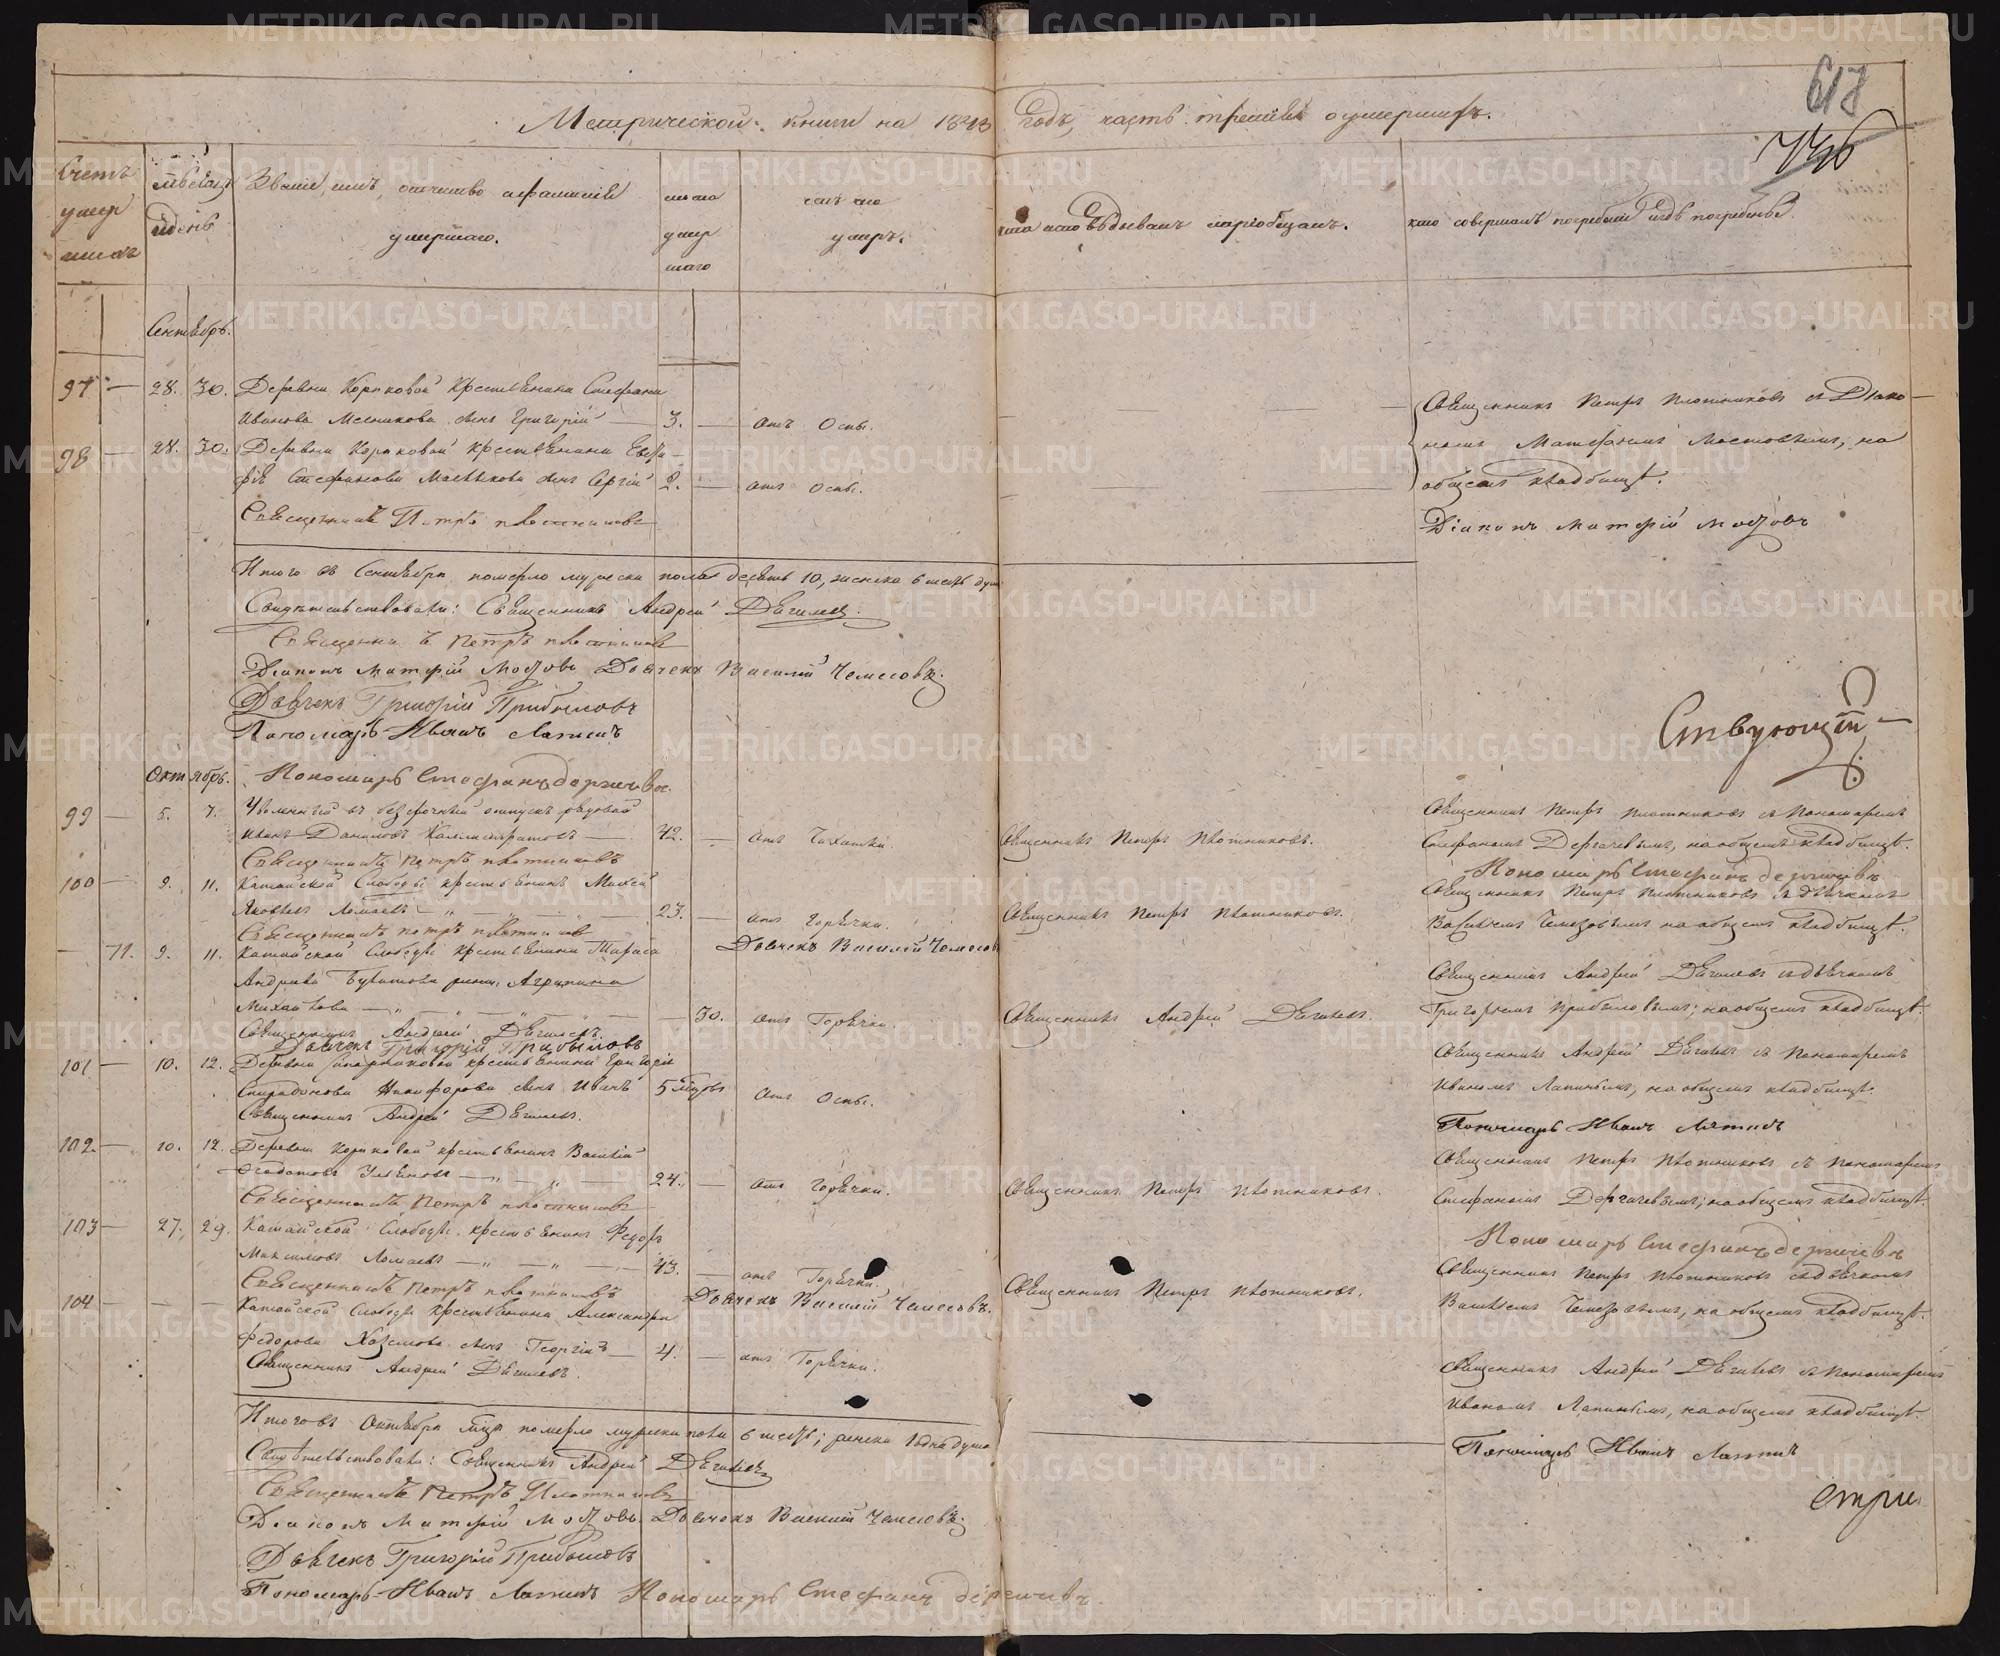 618
736
Метрической книги на 1843 годъ, часть третiя о умершихъ.
Счетъ умер шихъ
Мѣсяцъ и день
Званiе, имя, отчество и фамилiя умершаго.
лѣта умер шаго
отъ чего умеръ.
кто исповѣдывалъ и прiобщалъ.
кто совершалъ погребенiе и гдѣ погребены.
Сентябрь.
97 — 28. 30. Деревни Коряковой крестьянина Стефана
Иванова Мясникова сынъ Григорiй — 3. — отъ Оспы.
Священникъ Петръ Плотниковъ съ Дiако-
98 — 28. 30. Деревни Коряковой крестьянина Евса-
номъ Матфiемъ Мостовымъ, на
фiя Стефанова сынъ Сергiй 2. — отъ Оспы.
общемъ кладбищѣ.
Священникъ Петръ Плотниковъ
Дiаконъ Матфiй
Итого въ Сентябрѣ померло мужеска пола десять 10, женска 6 шесть душъ
Свидѣтельствовали: Священникъ Андрей Дягилевъ.
Священникъ Петръ Плотниковъ
Дiаконъ Матфiй Дьячекъ Василiй Чемесовъ.
Дьячекъ Григорiй Прибыловъ
Пономарь Иванъ Лапинъ
Ствующiй
Октябрь.
Пономарь Стефанъ Дергачевъ.
99 — 5. 7. Уволенный въ безсрочный отпускъ рядовой
Иванъ Даниловъ Каллистратовъ — 42. — отъ Чахотки.
Священникъ Петръ Плотниковъ.
Священникъ Петръ Плотниковъ съ Пономаремъ
Стефаномъ Дергачевымъ, на общемъ кладбищѣ.
Священникъ Петръ Плотниковъ
Пономарь Стефанъ Дергачевъ
100 — 9. 11. Катайской Слободы крестьянинъ
Яковлевъ Ломаевъ — 23. — отъ Горячки.
Священникъ Петръ Плотниковъ.
Священникъ Петръ Плотниковъ съ дьячкомъ
Василiемъ Чемезовымъ на общемъ кладбищѣ.
Священникъ Петръ Плотниковъ
Дьячекъ Василiй Чемесовъ
— 71. 9. 11. Катайской Слободы крестьянина Тараса
Андреева жена Агрипина
Михайлова — 30. отъ Горячки.
Священникъ Андрей Дягилевъ.
Священникъ Андрей Дягилевъ съ дьячкомъ
Григорiемъ Прибыловымъ; на общемъ кладбищѣ.
Священникъ Андрей Дягилевъ.
Дьячекъ Григорiй Прибыловъ
101 — 10. 12. Деревни крестьянина Григорiя
Спиридонова Никифорова сынъ Иванъ 5 мцовъ отъ Оспы.
Священникъ Андрей Дягилевъ съ Пономаремъ
Иваномъ Лапинымъ, на общемъ кладбищѣ.
Священникъ Андрей Дягилевъ.
Пономарь Иванъ Лапинъ
102. — 10. 12. Деревни Коряковой крестьянинъ Василiй
Федотовъ Ульяновъ — 24. — отъ Горячки.
Священникъ Петръ Плотниковъ.
Священникъ Петръ Плотниковъ съ Пономаремъ
Стефаномъ Дергачевымъ; на общемъ кладбищѣ.
Священникъ Петръ Плотниковъ
Пономарь Стефанъ Дергачевъ
103 — 27. 29. Катайской Слободы крестьянинъ Федоръ
Максимовъ Ломаевъ — 43. — отъ Горячки.
Священникъ Петръ Плотниковъ.
Священникъ Петръ Плотниковъ съ дьячкомъ
Василiемъ Чемезовымъ, на общемъ кладбищѣ.
Священникъ Петръ Плотниковъ
Дьячекъ Василiй Чемесовъ.
104 — — — Катайской Слободы крестьянина Александра
Федорова сынъ Георгiй — 4. — отъ Горячки.
Священникъ Андрей Дягилевъ.
Священникъ Андрей Дягилевъ съ Пономаремъ
Иваномъ Лапинымъ, на общемъ кладбищѣ.
Пономарь Иванъ Лапинъ
Итого въ Октябрѣ мцѣ померло мужска пола 6 шесть; женска 1 одна душа
Свидѣтельствовали: Священникъ Андрей Дягилевъ
Священникъ Петръ Плотниковъ
Дiаконъ Матфiй Дьячекъ Василiй Чемесовъ.
Дьячекъ Григорiй Прибыловъ
Пономарь Иванъ Лапинъ Пономарь Стефанъ Дергачевъ.
METRIKI.GASO-URAL.RU